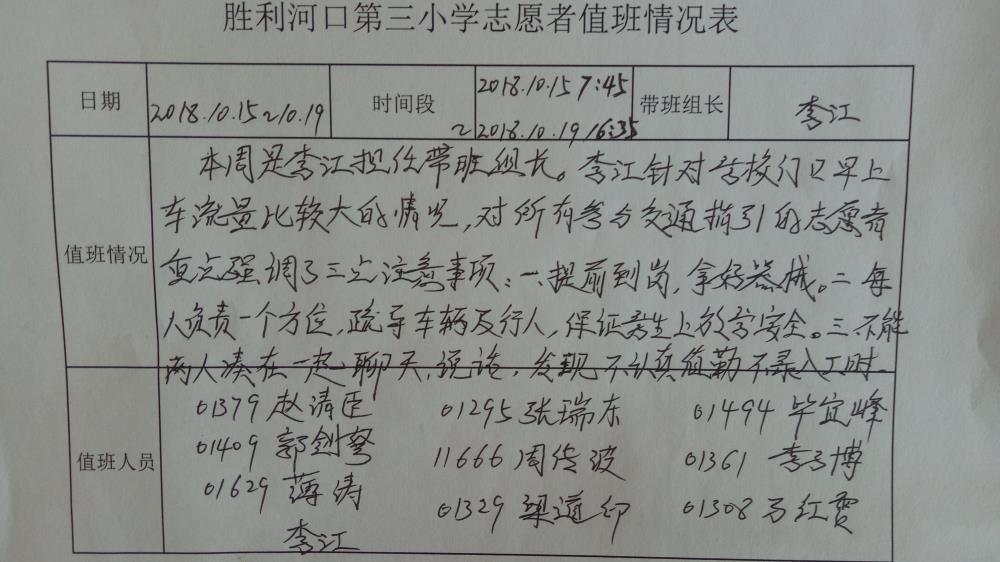 胜利河口第三小学志愿者值班情况表
日期 2018.10.15~10.19 时间段 2018.10.15 7:45 ~2018.10.19 16:35 带班组长 李江
值班情况
本周是李江担任带班组长。李江针对学校门口早上
车流量比较大的情况,对所有参与交通指引的志愿者
重点强调了三点注意事项:一、提前到岗,拿好器械。二每
人负责一个方位,疏导车辆及行人,保证学生上放学安全。三、不能
两人凑在一起聊天,说话,发现不认真值勤不录入工时。
值班人员
01379 赵清臣 01295 张瑞东 01494 毕定峰
01409 郭剑弩 11666 周传波 01361 李子博
01629 薄涛 01329 梁道印 01308 万红贾
李江